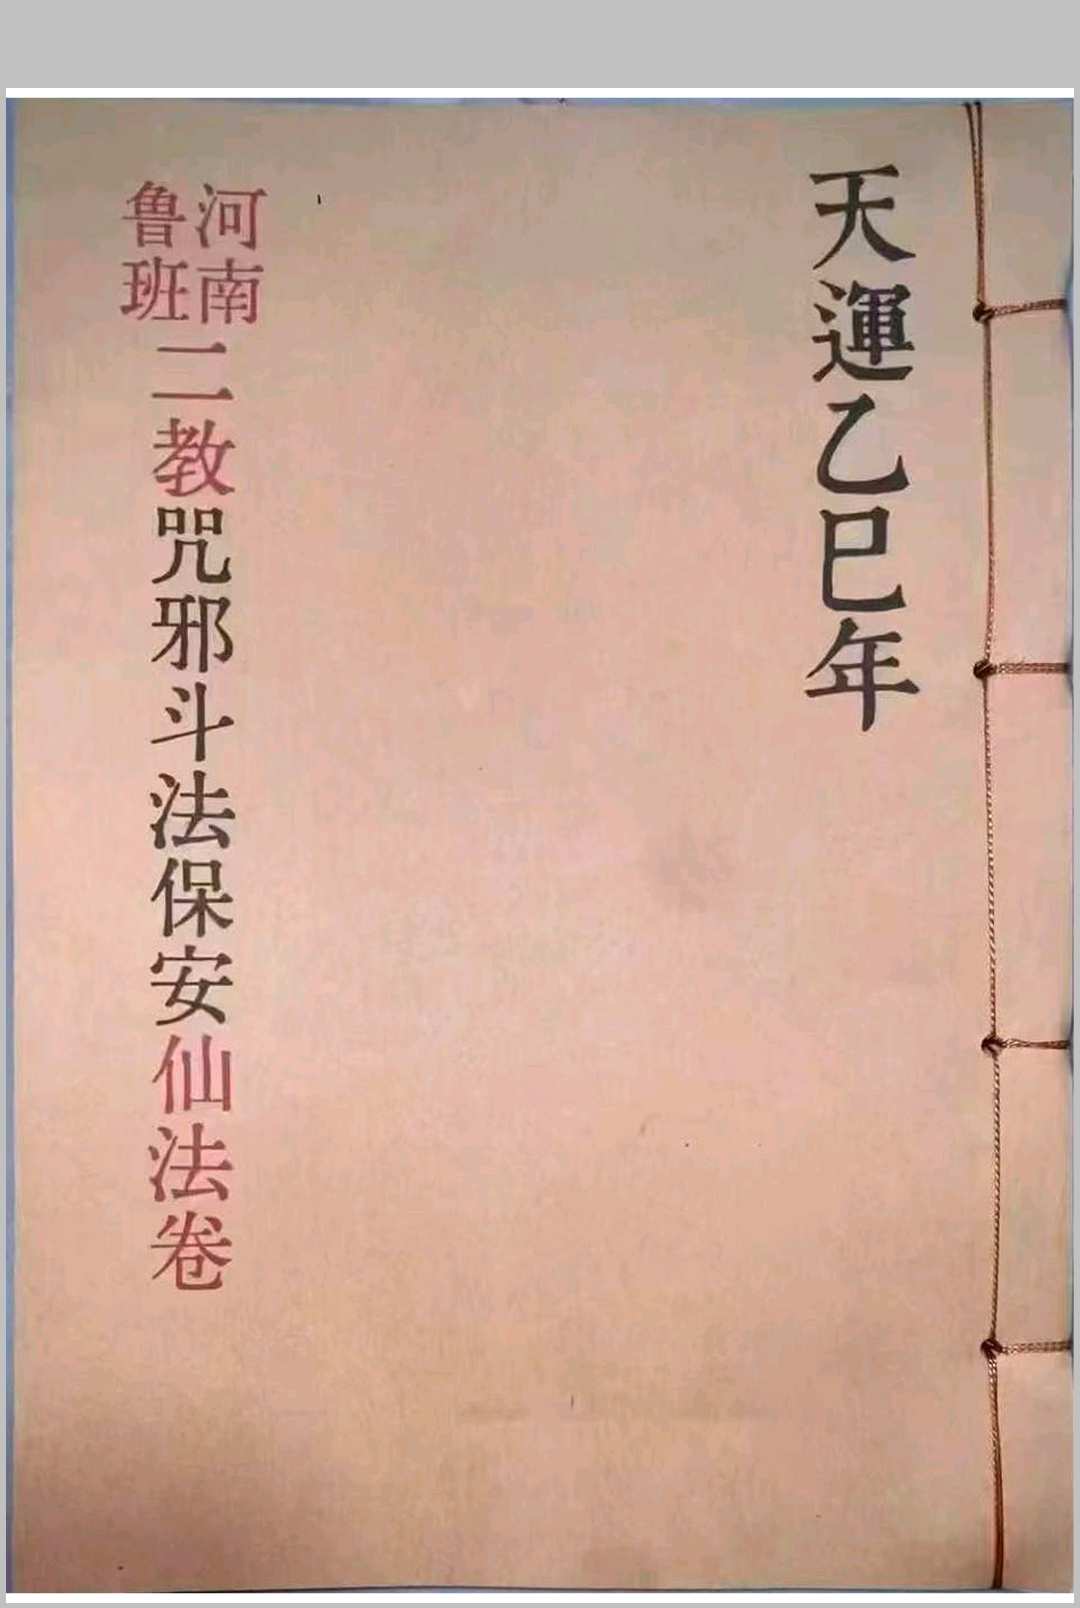 天運乙巳年
河南
鲁班
二教咒邪斗法保安仙法卷